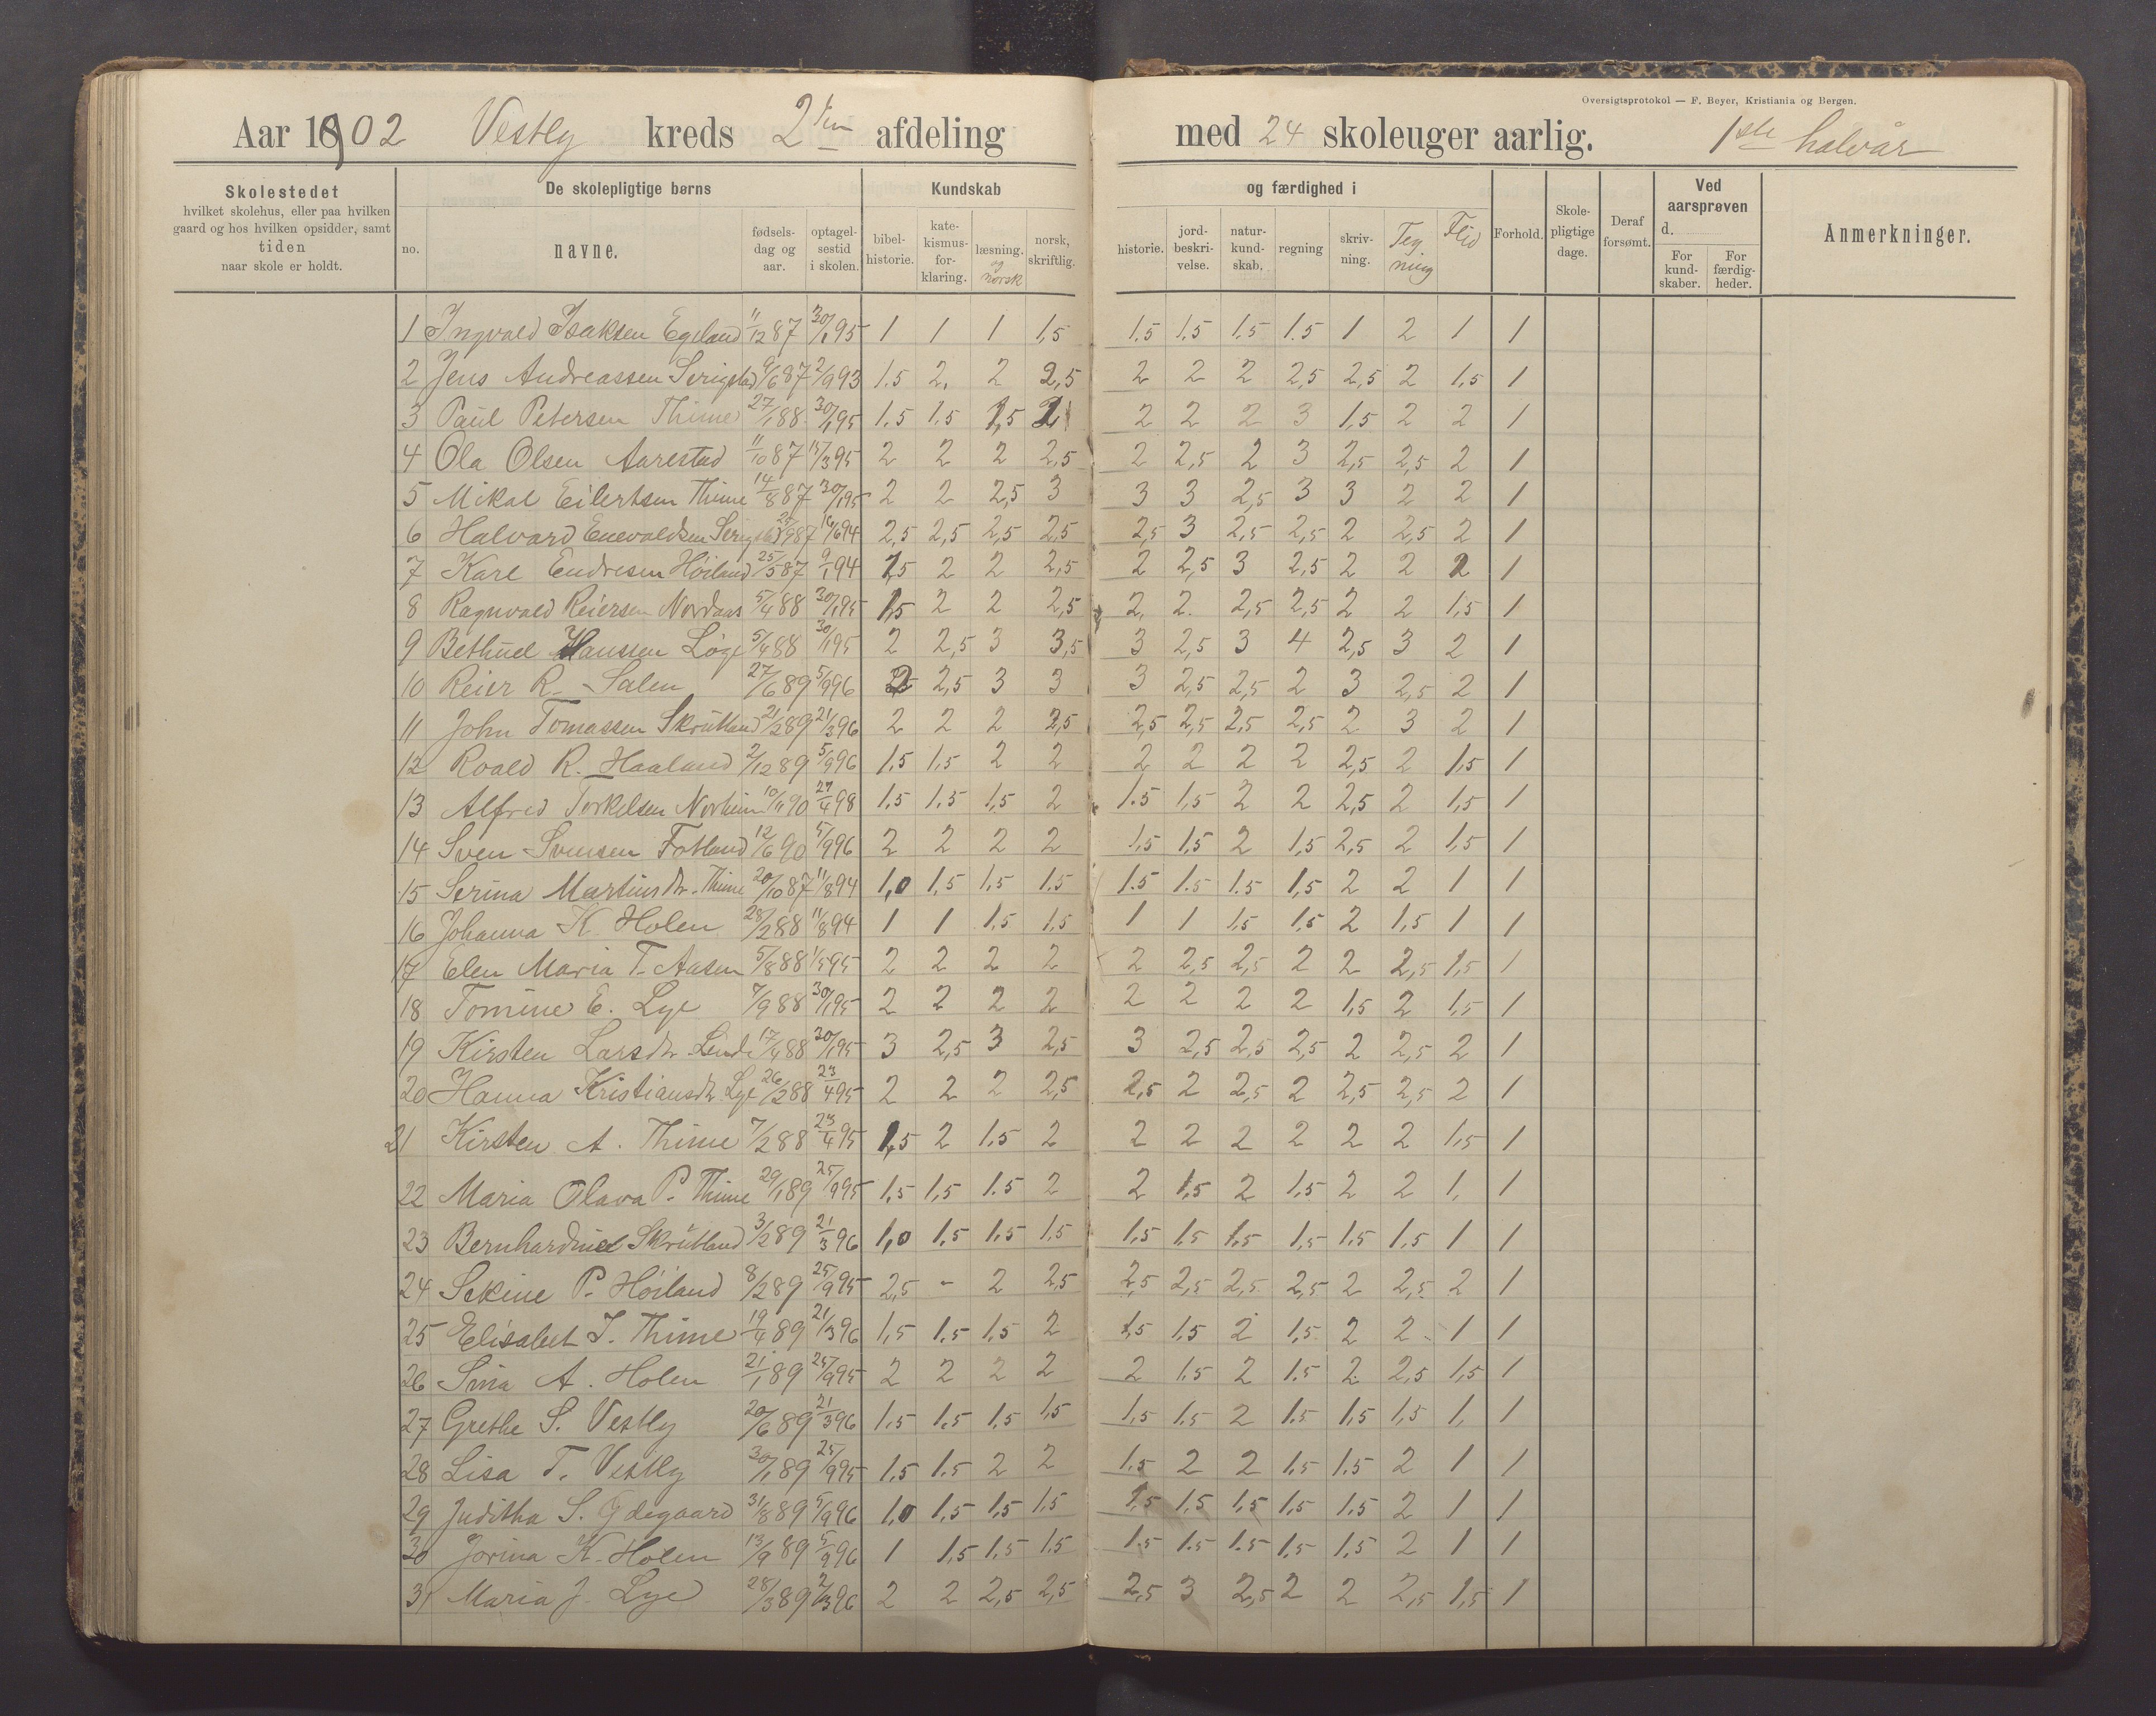 Oversigtsprotokol — F. Beyer, Kristiania og Bergen.
Aar 1902 Vestly kreds 2den afdeling med 24 skoleuger aarlig. 1ste halvår
Skolestedet hvilket skolehus, eller paa hvilken gaard og hos hvilken opsidder, samt tiden naar skole er holdt.
De skolepligtige børns
no. navne. fødsels-dag og aar. optagel-sestid i skolen.
Kundskab og færdighed i
bibel-historie. kate-kismus-for-klaring. læsning. og norsk norsk, skriftlig. historie. jord-beskri-velse. natur-kund-skab. regning skriv-ning. Teg ning Flid
Forhold. Skole-pligtige dage. Deraf forsømt.
Ved aarsprøven d.
For kund-skaber. For færdig-heder.
Anmerkninger.
1 Ingvald Isaksen Egeland 11/12 87 30/1 95 1 1 1 1,5 1.5 1.5 1.5 1.5 1 2 1 1
2 Jens Andreassen Serigstad 9/6 87 2/9 93 1.5 2. 2 2,5 2 2 2 2,5 2,5 2 1,5 1
3 Paul Petersen Thime 27/1 88 30/1 95 1.5 1.5 1,5 2 2 2 3 1,5 2 2 1
4 Ola Olsen Aarestad 11/10 87 15/3 95 2 2 2 2,5 2 2,5 2 3 2,5 2,5 2 1
5 Mikal Eilertsen Thime 14/8 87 30/1 95 2 2 2,5 3 3 3 2,5 3 3 2 2 1
6 Halvard Enevaldsen 87 94 2,5 2,5 2,5 2,5 2,5 3 2,5 2,5 2 2,5 2 1
7 Karl Endresen Höiland 25/5 87 9/1 94 1,5 2 2 2,5 2 2,5 3 2,5 2 2 2 1
8 Ragnvald Reiersen Nordaas 5/4 88 30/1 95 1,5 2 2 2,5 2, 2. 2,5 2,5 2 2 1,5 1
9 Bethuel Hanssen Löge 5/4 88 30/1 95 2 2,5 3 3,5 3 2,5 3 4 2,5 3 2 1
10 Reier R. Salen 27/6 89 5/9 96 2,5 3 3 3 2,5 2,5 2 3 2,5 2 1
11 John Tomassen Skrutland 21/2 89 21/3 96 2 2 2 2,5 2,5 2,5 2,5 2,5 2 3 2 1
12 Roald R. Haaland 2/12 89 5/9 96 1,5 1,5 2 2 2 2 2 2 2,5 2 1,5 1
13 Alfred Torkelsen Norheim 10/11 90 27/4 98 1,5 1,5 1,5 2 1.5 1,5 2 2 2,5 2 1,5 1
14 Sven Svensen Fotland 12/6 90 5/9 96 2 2 2 2 1,5 1,5 2 1,5 2,5 2 1,5 1
15 Serina Martinsdtr. Thime 20/10 87 11/8 94 1,0 1,5 1,5 1.5 1.5 1.5 1.5 1,5 2 2 1 1
16 Johanna K. Holen 28/2 88 11/8 94 1 1 1.5 1,5 1 1 1,5 1,5 2 1,5 1 1
17 Elen Maria T. Aasen 5/8 88 95 2 2 2 2 2 2,5 2,5 2 2 2,5 1,5 1
18 Tomine E. Lye 7/9 88 30/1 95 2 2 2 2 2 2 2 2 1,5 2 1,5 1
19 Kirsten Larsdtr. Linde 17/4 88 30/1 95 3 2,5 3 2,5 3 2,5 2,5 2,5 2 2,5 2 1
20 Hanna Kristiansdtr. Lye 26/2 88 23/4 95 2 2 2 2,5 2,5 2 2,5 2 2,5 2,5 2 1
21 Kirsten A. Thime 7/2 88 23/4 95 1,5 2 1.5 2 2 2 2 2 2 2 1,5 1
22 Maria Olava P. Thime 29/1 89 25/9 95 1,5 1,5 1.5 2 2 1,5 2 1,5 2 2 1, 1
23 Bernhardine Skrutland 3/2 89 21/3 96 1,0 1,5 1,5 1,5 1,5 1,5 1,5 1,5 1,5 1,5 1 1
24 Sekine P. Höiland 8/2 89 25/9 95 2,5 - 2 2,5 2,5 2,5 2,5 2,5 2 2,5 2 1
25 Elisabet I. Thime 19/4 89 21/3 96 1,5 1.5 1,5 2 1,5 1,5 2 1,5 2 2 1 1
26 Sina A. Holen 21/1 89 25/9 95 2 2 2 2 2 1,5 2 1.5 2 2,5 1,5 1
27 Grethe S. Vestly 20/6 89 21/3 96 1,5 1,5 1,5 1,5 1,5 1,5 2 1.5 1,5 1,5 1, 1
28 Lisa T. Vestly 30/1 89 25/9 95 1,5 1.5 2 2 1.5 2 2 1,5 1.5 2 1 1
29 Juditha S. Ødegaard 31/8 89 5/9 96 1,0 1,5 1,5 1,5 1,5 1,5 1,5 1,5 1.5 2 1 1
30 Jorina K. Holen 13/9 89 5/9 96 1 1,5 1,5 1.5 1.5 1.5 1.5 1,5 1.5 2 1 1
31 Maria J. Lye 28/3 89 2/3 96 2 2 2,5 2,5 2,5 3 2,5 2 2 2,5 1,5 1